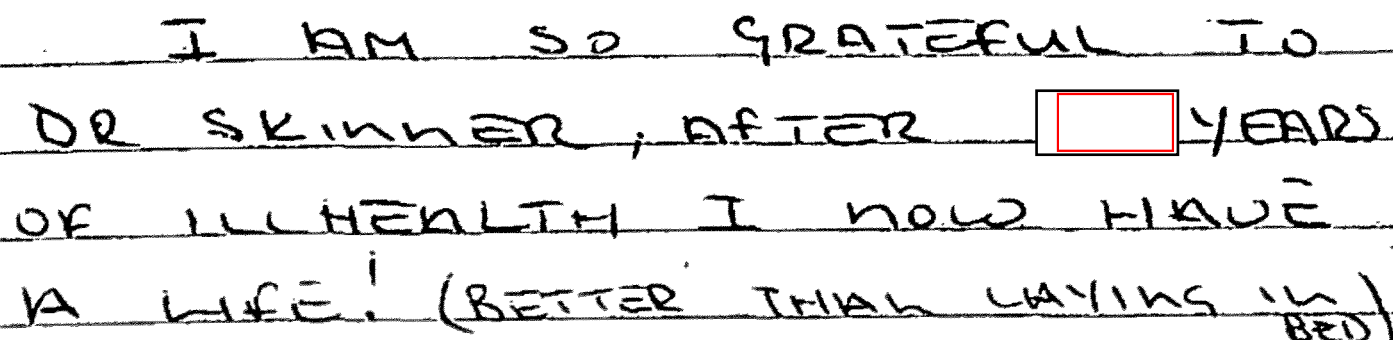 I AM SO GRATEFUL TO
DR SKINNER, AFTER YEARS
OF ILLHEALTH I NOW HAVE
A LIFE! (BETTER THAN LAYING IN
BED)